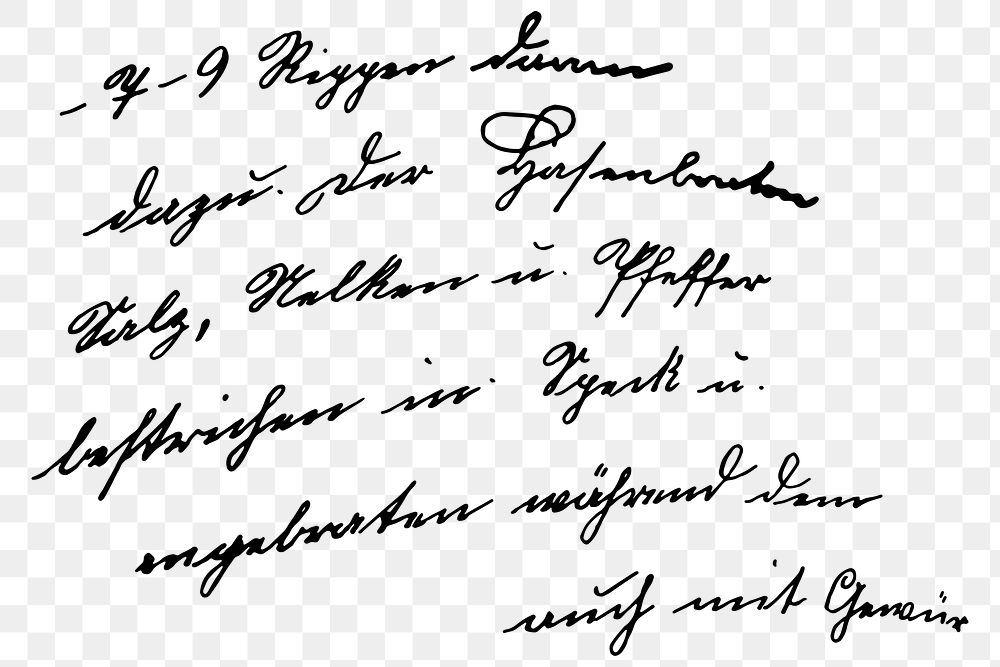 – 7 – 9 Rippen davon
dazu. Der Hasenbraten
Salz, Nelken u. Pfeffer
bestrichen in Speck u.
angebraten während dem
auch mit Gewür